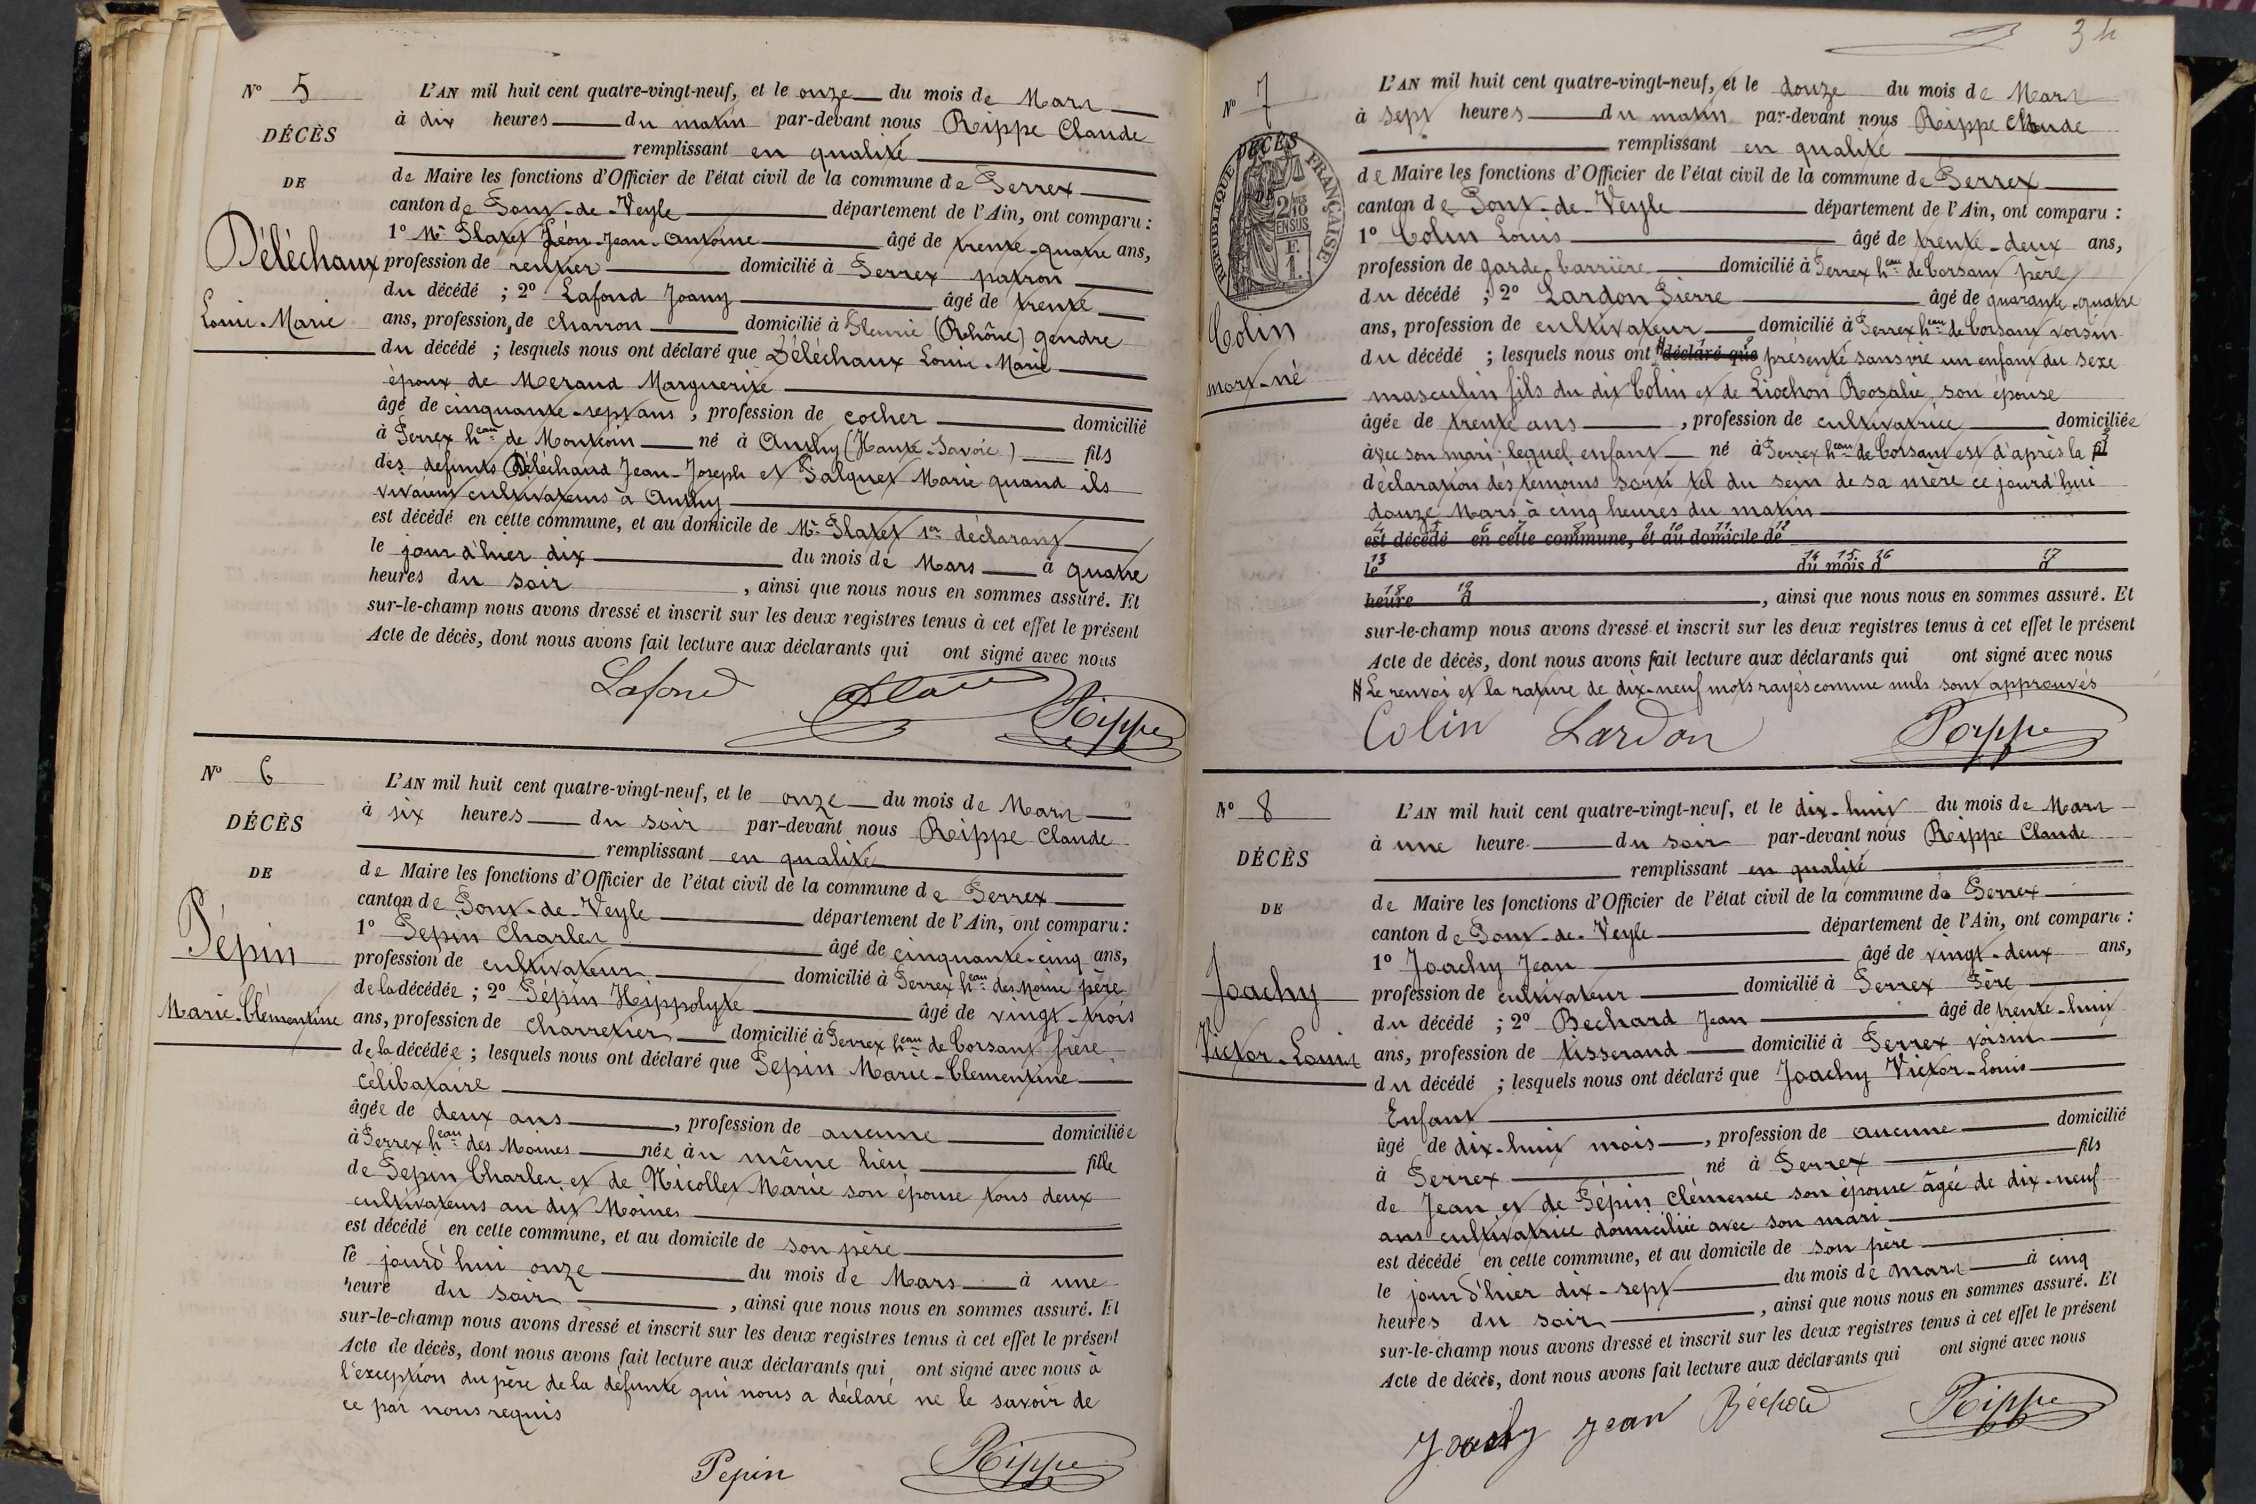 N° 5
DÉCÈS
DE
Déléchaux
Louis-Marie
L'AN mil huit cent quatre-vingt-neuf, et le onze du mois de Mars
à dix heures du matin par-devant nous Rippe Claude
remplissant en qualité
de Maire les fonctions d'Officier de l'état civil de la commune de Perrex
canton de Pont-de-Veyle département de l'Ain, ont comparu :
1° Mr Platet Léon-Jean-Antoine âgé de trente-quatre ans,
profession de rentier domicilié à Perrex patron
du décédé ; 2° Lafond Joany âgé de trente
ans, profession de charron domicilié à Fleurie (Rhône) gendre
du décédé ; lesquels nous ont déclaré que Déléchaux Louis-Marie
époux de Merand Marguerite
âgé de cinquante-sept ans, profession de cocher domicilié
à Perrex heau de Montcoin né à Anthy (Haute-Savoie) fils
des defunts Déléchaud Jean-Joseph et Falquet Marie quand ils
vivaient cultivateurs à Anthy
est décédé en cette commune, et au domicile de Mr Platet 1er déclarant
le jour d'hier dix du mois de Mars à quatre
heures du soir, ainsi que nous nous en sommes assuré. Et
sur-le-champ nous avons dressé et inscrit sur les deux registres tenus à cet effet le présent
Acte de décès, dont nous avons fait lecture aux déclarants qui ont signé avec nous
Lafond Rippe
N° 6
DÉCÈS
DE
Pépin
Marie-Clémentine
L'AN mil huit cent quatre-vingt-neuf, et le onze du mois de Mars
à six heures du soir par-devant nous Rippe Claude
remplissant en qualité
de Maire les fonctions d'Officier de l'état civil de la commune de Perrex
canton de Pont-de-Veyle département de l'Ain, ont comparu :
1° Pepin Charles âgé de cinquante-cinq ans,
profession de cultivateur domicilié à Perrex heau des Moine père
de la décédée ; 2° Pépin Hippolyte âgé de vingt-trois
ans, profession de charretier domicilié à Perrex heau de Corsant frère
de la décédée ; lesquels nous ont déclaré que Pepin Marie-Clementine
célibataire
âgée de deux ans, profession de aucune domiciliée
à Perrex heau des Moines née au même lieu fille
de Pepin Charles et de Nicollet Marie son épouse tous deux
cultivateurs au dit Moines
est décédé en cette commune, et au domicile de son père
le jourd'hui onze du mois de Mars à une
heure du soir, ainsi que nous nous en sommes assuré. Et
sur-le-champ nous avons dressé et inscrit sur les deux registres tenus à cet effet le présent
Acte de décès, dont nous avons fait lecture aux déclarants qui ont signé avec nous à
l'exception du père de la défunte qui nous a déclaré ne le savoir de
ce par nous requis
Pepin Rippe
34
N° 7
DÉCÈS
DE
RÉPUBLIQUE FRANÇAISE
2/10 EN SUS
F. 1.
Colin
mort-né
L'AN mil huit cent quatre-vingt-neuf, et le douze du mois de Mars
à sept heures du matin par-devant nous Rippe Claude
remplissant en qualité
de Maire les fonctions d'Officier de l'état civil de la commune de Perrex
canton de Pont-de-Veyle département de l'Ain, ont comparu :
1° Colin Louis âgé de trente-deux ans,
profession de garde-barrière domicilié à Perrex heau de Corsant père
du décédé ; 2° Lardon Pierre âgé de quarante-quatre
ans, profession de cultivateur domicilié à Perrex heau de Corsant voisin
du décédé ; lesquels nous ont # déclaré que présenté sans vie un enfant du sexe
masculin fils du dit Colin et de Liochon Rosalie, son épouse
âgée de trente ans, profession de cultivatrice domiciliée
avec son mari lequel enfant né à Perrex heau de Corsant est d'après la
déclaration des témoins sorti tel du sein de sa mère ce jourd'hui
douze Mars à cinq heures du matin
est décédé en cette commune, et au domicile de
le du mois d à
heure d, ainsi que nous nous en sommes assuré. Et
sur-le-champ nous avons dressé et inscrit sur les deux registres tenus à cet effet le présent
Acte de décès, dont nous avons fait lecture aux déclarants qui ont signé avec nous
# Le renvoi et la rature de dix-neuf mots rayés comme nuls sont approuvés
Colin Lardon Rippe
N° 8
DÉCÈS
DE
Joachy
Victor-Louis
L'AN mil huit cent quatre-vingt-neuf, et le dix-huit du mois de Mars
à une heure du soir par-devant nous Rippe Claude
remplissant en qualité
de Maire les fonctions d'Officier de l'état civil de la commune de Perrex
canton de Pont-de-Veyle département de l'Ain, ont comparu :
1° Joachy Jean âgé de vingt-deux ans,
profession de cultivateur domicilié à Perrex Père
du décédé ; 2° Bechard Jean âgé de trente-huit
ans, profession de tisserand domicilié à Perrex voisin
du décédé ; lesquels nous ont déclaré que Joachy Victor-Louis
Enfant
âgé de dix-huit mois, profession de aucune domicilié
à Perrex né à Perrex fils
de Jean et de Pépin Clémence son épouse âgée de dix-neuf
ans cultivatrice domiciliée avec son mari
est décédé en cette commune, et au domicile de son père
le jour d'hier dix-sept du mois de Mars à cinq
heures du soir, ainsi que nous nous en sommes assuré. Et
sur-le-champ nous avons dressé et inscrit sur les deux registres tenus à cet effet le présent
Acte de décès, dont nous avons fait lecture aux déclarants qui ont signé avec nous
Joachy Jean Béchard Rippe